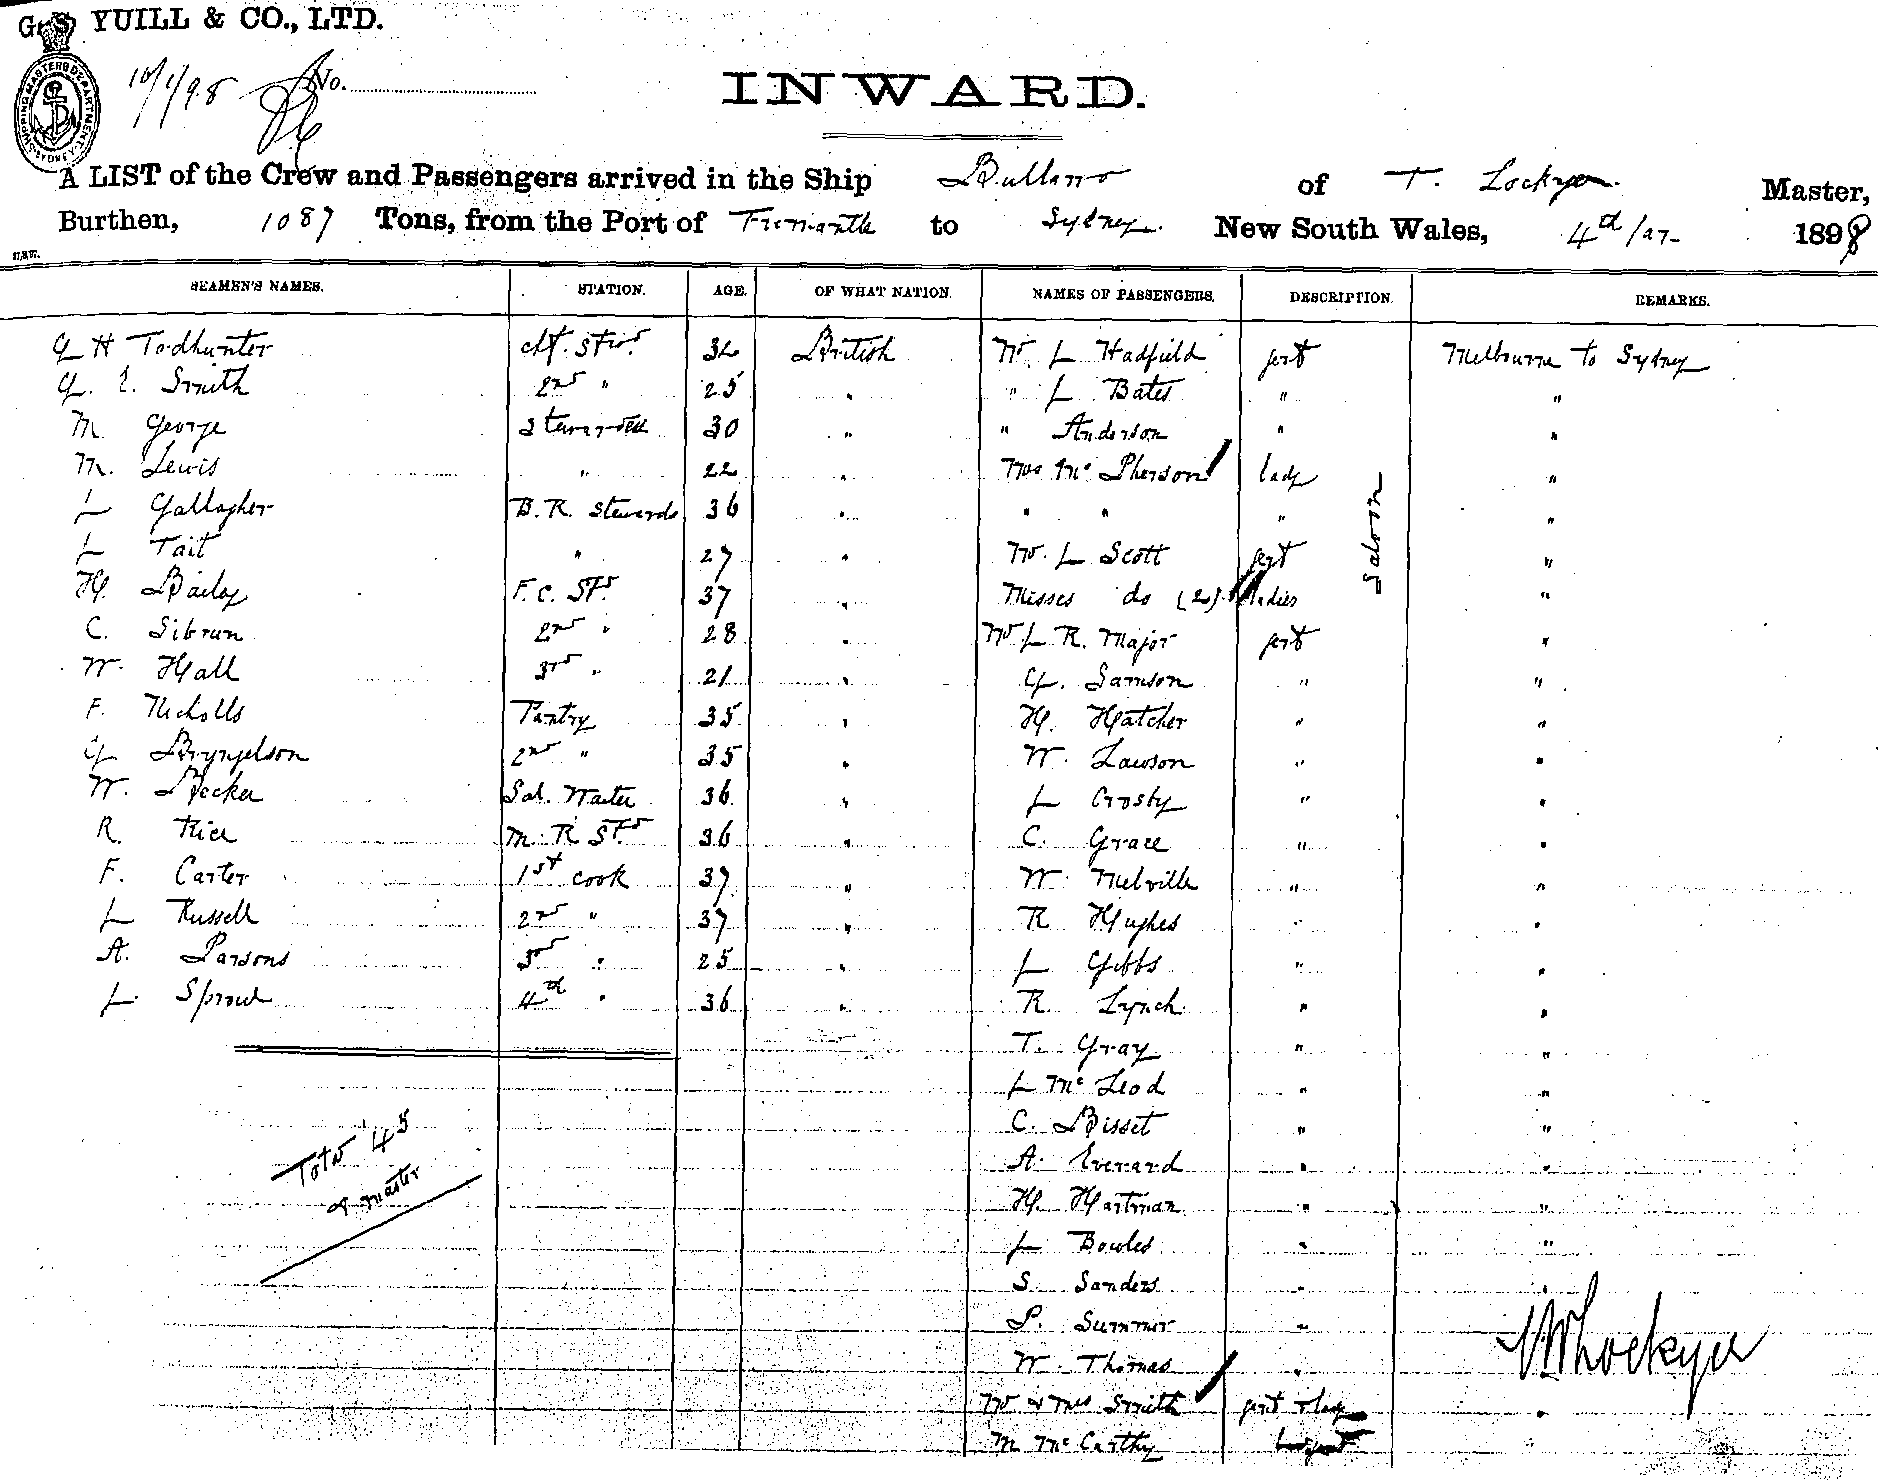 G. S. YUILL & CO., LTD.
SHIPPING MASTERS DEPARTMENT. SYDNEY.
10/1/98 No.
INWARD.
A LIST of the Crew and Passengers arrived in the Ship Bullarra of T. Lockyer Master,
Burthen, 1087 Tons, from the Port of Fremantle to Sydney. New South Wales, 4th 1898
SEAMEN'S NAMES. STATION. AGE. OF WHAT NATION. NAMES OF PASSENGERS. DESCRIPTION. REMARKS.
G H Todhunter chf. Stwd 32 British Mr. J Hadfield gent Melbourne to Sydney
G. E. Smith 2nd " 25 " " J Bates " "
M George Stewardess 30 " " Anderson " "
M. Lewis " 22 " Mrs Mc Pherson lady "
J Gallagher B. R. Stewards 36 " " " " "
J Tait " 27 " Mr. J Scott gent "
H. Bailey F. C. Std. 37 " Misses do (2) ladies "
Saloon
C. Sibrun 2nd " 28 " Mr J R. Major gent "
W. Hall 3rd " 21 " G. Samson " "
F. Nicholls Pantry 35 " H. Hatcher " "
G Bryngelson 2nd " 35 " W. Lawson " "
W. Becker Sal. Waiter 36 " J Crosby " "
R. Rice M. R Std 36 " C. Grace " "
F. Carter 1st cook 37 " W. Melville " "
J Russell 2nd " 37 " R Hughes " "
A. Parsons 3rd " 25 " J Gibbs " "
J. Sproul 4th " 36 " R Lynch " "
T. Gray " "
J Mc Leod " "
C. Bisset " "
A. Everard " "
H. Hartman " "
J Bowles " "
S. Sanders " "
P. Summer "
W. Thomas "
Mr & Mrs Smith gent & lady "
M Mc Carthy
Total 45
& master
Lockyer